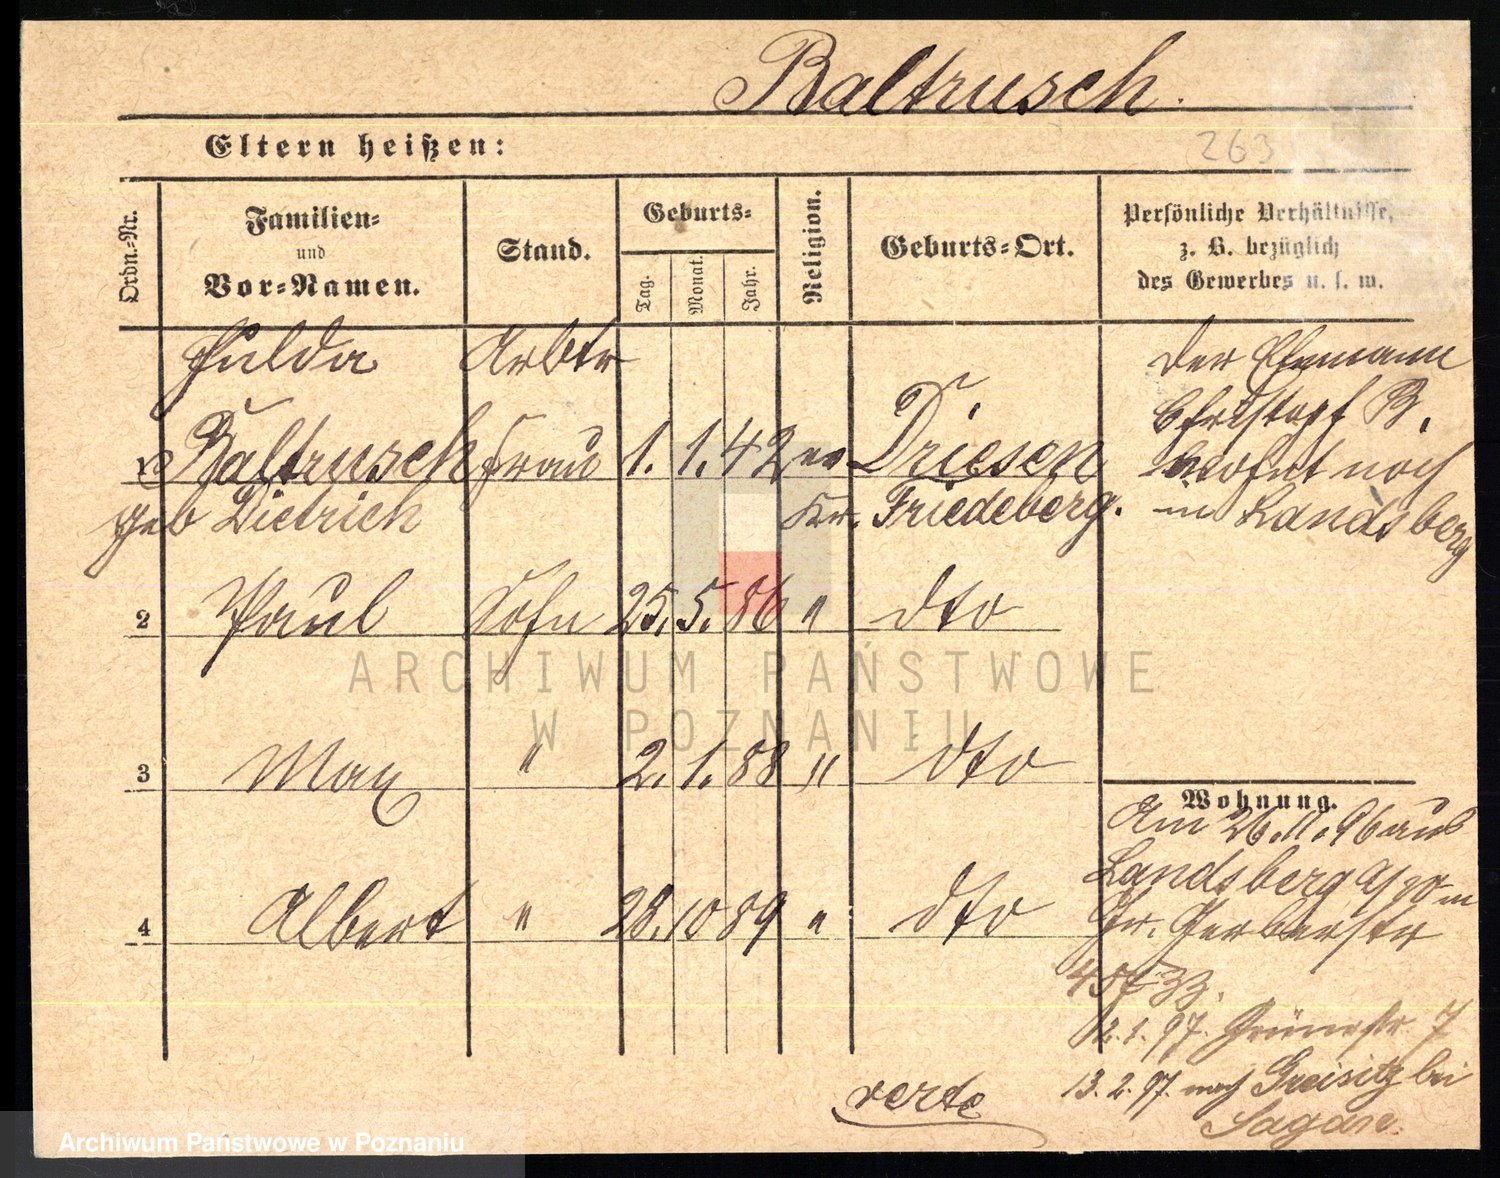 Baltrusch.
263
Eltern heißen:
Ordn.-Nr.
Familien-
und
Vor-Namen.
Stand.
Geburts-
Tag.
Monat.
Jahr.
Religion.
Geburts-Ort.
Persönliche Verhältnisse,
z. B. bezüglich
des Gewerbes u. s. w.
Hulda Arbtr
1 Baltrusch Frau 1. 1. 42 ev Driesen
geb Dietrich Kr. Friedeberg.
Der Ehemann
Christoph B.
wohnt noch
in Landsberg
2 Paul Sohn 25. 5. 86 " dto
3 Max " 2. 1. 88 " dto
4 Albert " 28. 10 89 " dto
Wohnung.
Am 26. 11. 96 aus
Landsberg
Gr. Gerberstr
12. 1. 97. Grünestr 7
13. 2. 97. nach Greisitz bei
Sagan.
verte
ARCHIWUM PAŃSTWOWE
W POZNANIU
Archiwum Państwowe w Poznaniu